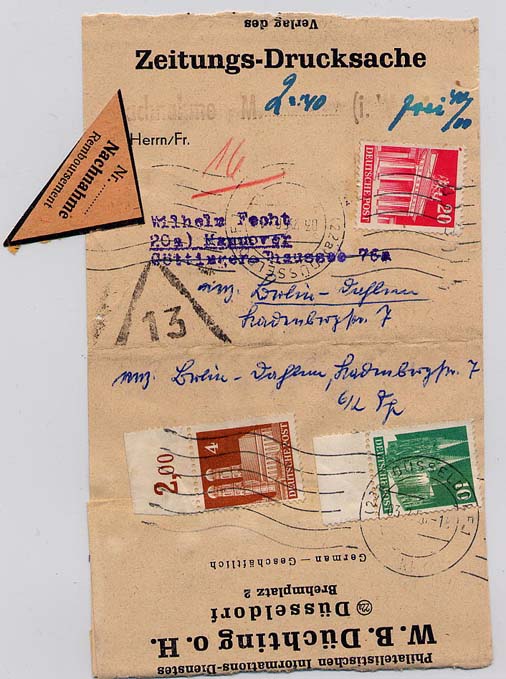 Verlag des
Zeitungs-Drucksache
Nachnahme M. 2.40 (i. W. frei 40/00
Herrn/Fr.
Nr. ............
Nachnahme
Remboursement
16
DEUTSCHE POST
20
Wilhelm Fecht
20a) Hannover
Göttingerchaussee 76a
Berlin-Dahlem
Ladenbergstr. 7
13
Berlin-Dahlem, Ladenbergstr. 7
2,00
4
DEUTSCHE POST
DEUTSCHE POST
10
German – Geschäftlich
Philatelistischen Informations-Dienstes
W. B. Düchting o. H.
(22a) Düsseldorf
Brehmplatz 2